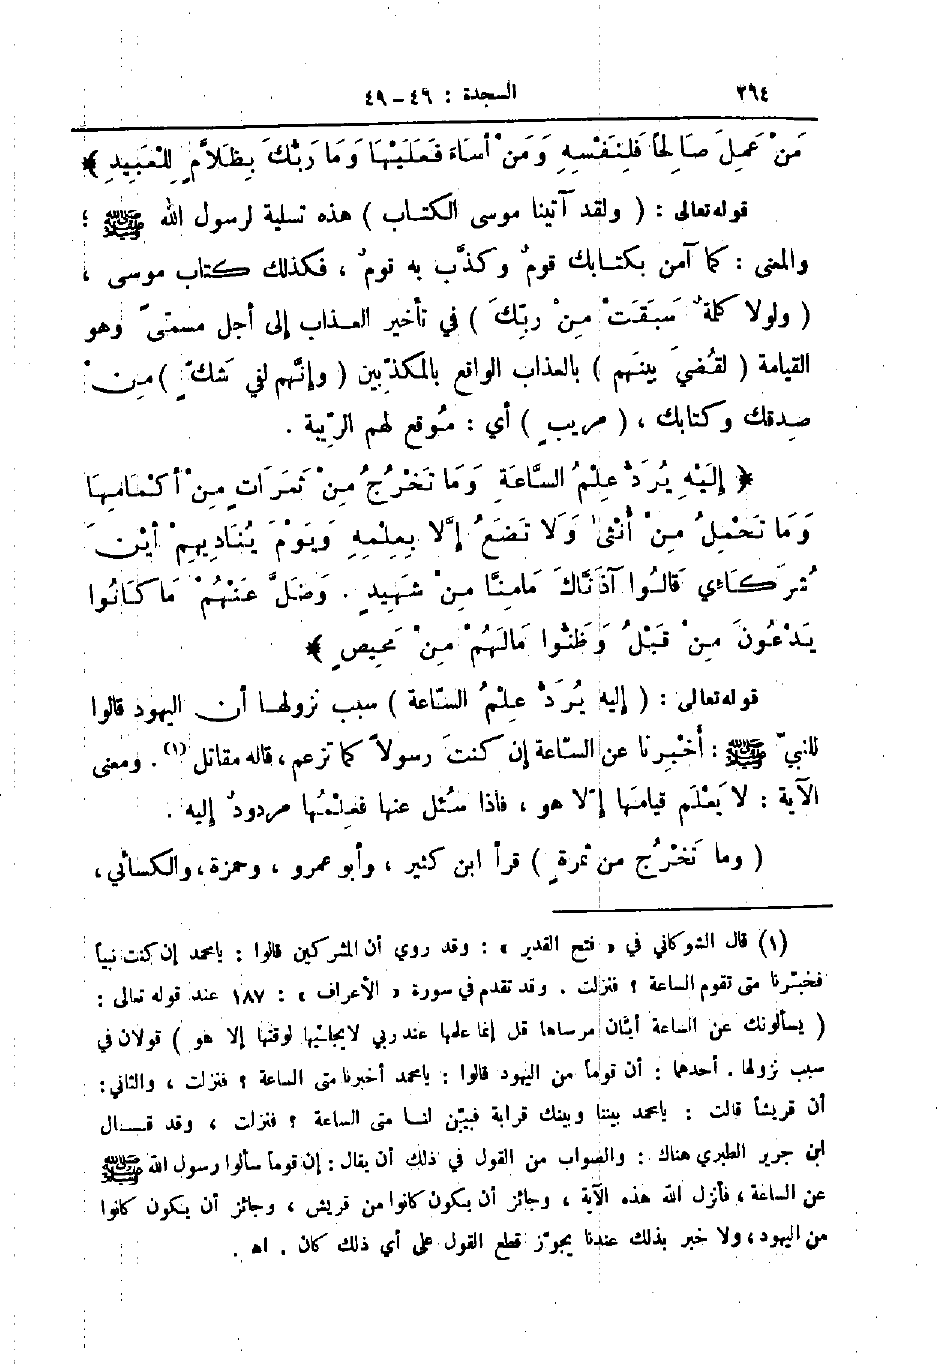 ٢٦٤ السجدة : ٤٦ – ٤٩
مَنْ عَمِلَ صَالِحاً فَلِنَفْسِهِ وَمَنْ أَسَاءَ فَعَلَيْهَا وَمَا رَبُّكَ بِظَلَّامٍ لِلْعَبِيدِ ﴾
قوله تعالى : ( ولقد آتينا موسى الكتاب ) هذه تسلية لرسول الله ﷺ ؛
والمعنى : كما آمن بكتابك قومٌ وكذَّب به قومٌ ، فكذلك كتاب موسى ،
( ولولا كلمةٌ سَبَقَتْ مِنْ ربِّكَ ) في تأخير العذاب إلى أجل مسمّىً وهو
القيامة ( لقُضيَ بينَهم ) بالعذاب الواقع بالمكذِّبين ( وإنَّهم لفي شكٍّ ) مِنْ
صِدقك وكتابك ، ( مريبٍ ) أي : مُوقع لهم الرِّيبة .
﴿ إِلَيْهِ يُرَدُّ عِلْمُ السَّاعَةِ وَمَا تَخْرُجُ مِنْ ثَمَرَاتٍ مِنْ أَكْمَامِهَا
وَمَا تَحْمِلُ مِنْ أُنْثَىٰ وَلَا تَضَعُ إِلَّا بِعِلْمِهِ وَيَوْمَ يُنَادِيهِمْ أَيْنَ
شُرَكَائِي قَالُوا آذَنَّاكَ مَامِنَّا مِنْ شَهِيدٍ . وَضَلَّ عَنْهُمْ مَا كَانُوا
يَدْعُونَ مِنْ قَبْلُ وَظَنُّوا مَالَهُمْ مِنْ مَحِيصٍ ﴾
قوله تعالى : ( إليه يُرَدُّ عِلْمُ السّاعة ) سبب نزولها أن اليهود قالوا
للنبيّ ﷺ : أَخْبِرنا عن السّاعة إن كنتَ رسولاً كما تزعم ، قاله مقاتل (١) . ومعنى
الآية : لا يَعْلَم قيامَها إلّا هو ، فاذا سُئل عنها فعِلْمُها مردودٌ إليه .
( وما تَخْرُج من ثمرةٍ ) قرأ ابن كثير ، وأبو عمرو ، وحمزة ، والكسائي ،
(١) قال الشوكاني في « فتح القدير » : وقد روي أن المشركين قالوا : يامحمد إن كنت نبياً
فخبّرنا متى تقوم الساعة ؟ فنزلت . وقد تقدم في سورة « الأعراف » : ١٨٧ عند قوله تعالى :
( يسألونك عن الساعة أيّان مرساها قل إنما علمها عند ربي لايجلّيها لوقتها إلا هو ) قولان في
سبب نزولها . أحدهما : أن قوماً من اليهود قالوا : يامحمد أخبرنا متى الساعة ؟ فنزلت ، والثاني :
أن قريشاً قالت : يامحمد بيننا وبينك قرابة فبيّن لنا متى الساعة ؟ فنزلت ، وقد قال
ابن جرير الطبري هناك : والصواب من القول في ذلك أن يقال : إن قوماً سألوا رسول الله ﷺ
عن الساعة ، فأنزل الله هذه الآية ، وجائز أن يكون كانوا من قريش ، وجائز أن يكون كانوا
من اليهود ، ولا خبر بذلك عندنا يجوّز قطع القول على أي ذلك كان . اه .